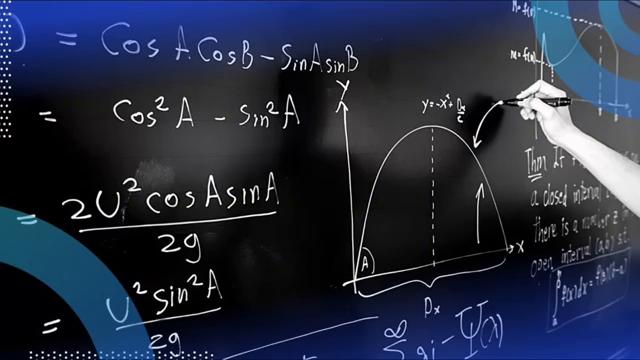 ) = Cos A CosB - SinAsinB
= Cos² A - Sin² A
= 2U² cosAsinA / 2g
= U² sin² A / 2g
Y
y=-x²+Dx/2
A
X
Dx
∞
∑ gi - Ψ(x)
M=f(x)
m=f(x)
Thm If
a closed interval
there is a number z in
open interval (a,b) s.t.
∫ f(x)dx = f(z)(b-a)